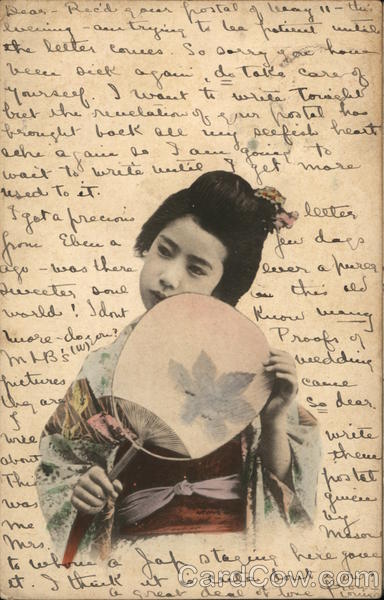 Dear - Rec'd your postal of May 11 - this
evening - am trying to be patient until
the letter comes. So sorry you have
been sick again, do take care of
yourself. I want to write tonight
but the revelation of your postal has
brought back all my selfish heart
ache again so I am going to
wait to write until I get more
used to it.
I got a precious letter
from Eben a few days
ago - was there ever a purer
sweeter soul in this old
world! I dont know many
more - do you? Proofs of
MLB's wedding
pictures came
they are so dear.
I will write
about them
This postal
was given
me by
Mrs. Mason
to whom a Jap staying here gave
it. I think it is cute don't you
a great deal of love from
CardCow.com